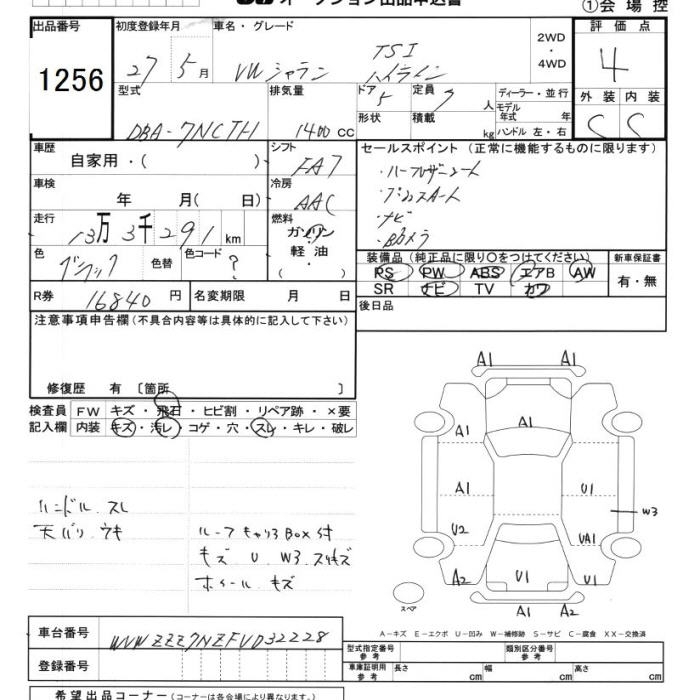 オークション出品申込書
①会場控
出品番号 1256
初度登録年月 27 5月
車名・グレード VW シャラン TSI ハイライン
2WD・4WD
評価点 4
外装 C 内装 C
型式 DBA-7NCTH
排気量 1400 cc
ドア 5 形状
定員 7 人 積載 kg
ディーラー・並行
モデル年式 年
ハンドル 左・右
車歴 自家用・( )
シフト FA7
セールスポイント (正常に機能するものに限ります)
・ハーフレザーシート
・プッシュスタート
・ナビ
・Bカメラ
車検 年 月(日)
冷房 AAC
走行 13万3千291 km
燃料 ガソリン 軽油 ・( )
色 ブラック 色替
色コード ?
装備品 (純正品に限り○をつけてください) 新車保証書
PS PW ABS エアB AW
SR ナビ TV カワ
有・無
R券 16840 円
名変期限 月 日
後日品
注意事項申告欄 (不具合内容等は具体的に記入して下さい)
修復歴 有 [箇所 ]
検査員記入欄
FW キズ・飛石・ヒビ割・リペア跡・×要
内装 キズ・汚レ・コゲ・穴・スレ・キレ・破レ
ハンドル スレ
天バリ ウキ
ルーフキャリアBOX付
キズ U W3 スリキズ
ホイール キズ
A1 A1
A1 A1
A1 U1
W3
U2 UA1
A2 U1 U1
A1 A2
スペア
A-キズ E-エクボ U-凹み W-補修跡 S-サビ C-腐食 XX-交換済
車台番号 WVWZZZ7NZFVD32228
登録番号
型式指定番号 参考
類別区分番号 参考
車庫証明用 参考 長さ cm 幅 cm 高さ cm
希望出品コーナー (コーナーは各会場により異なります。)